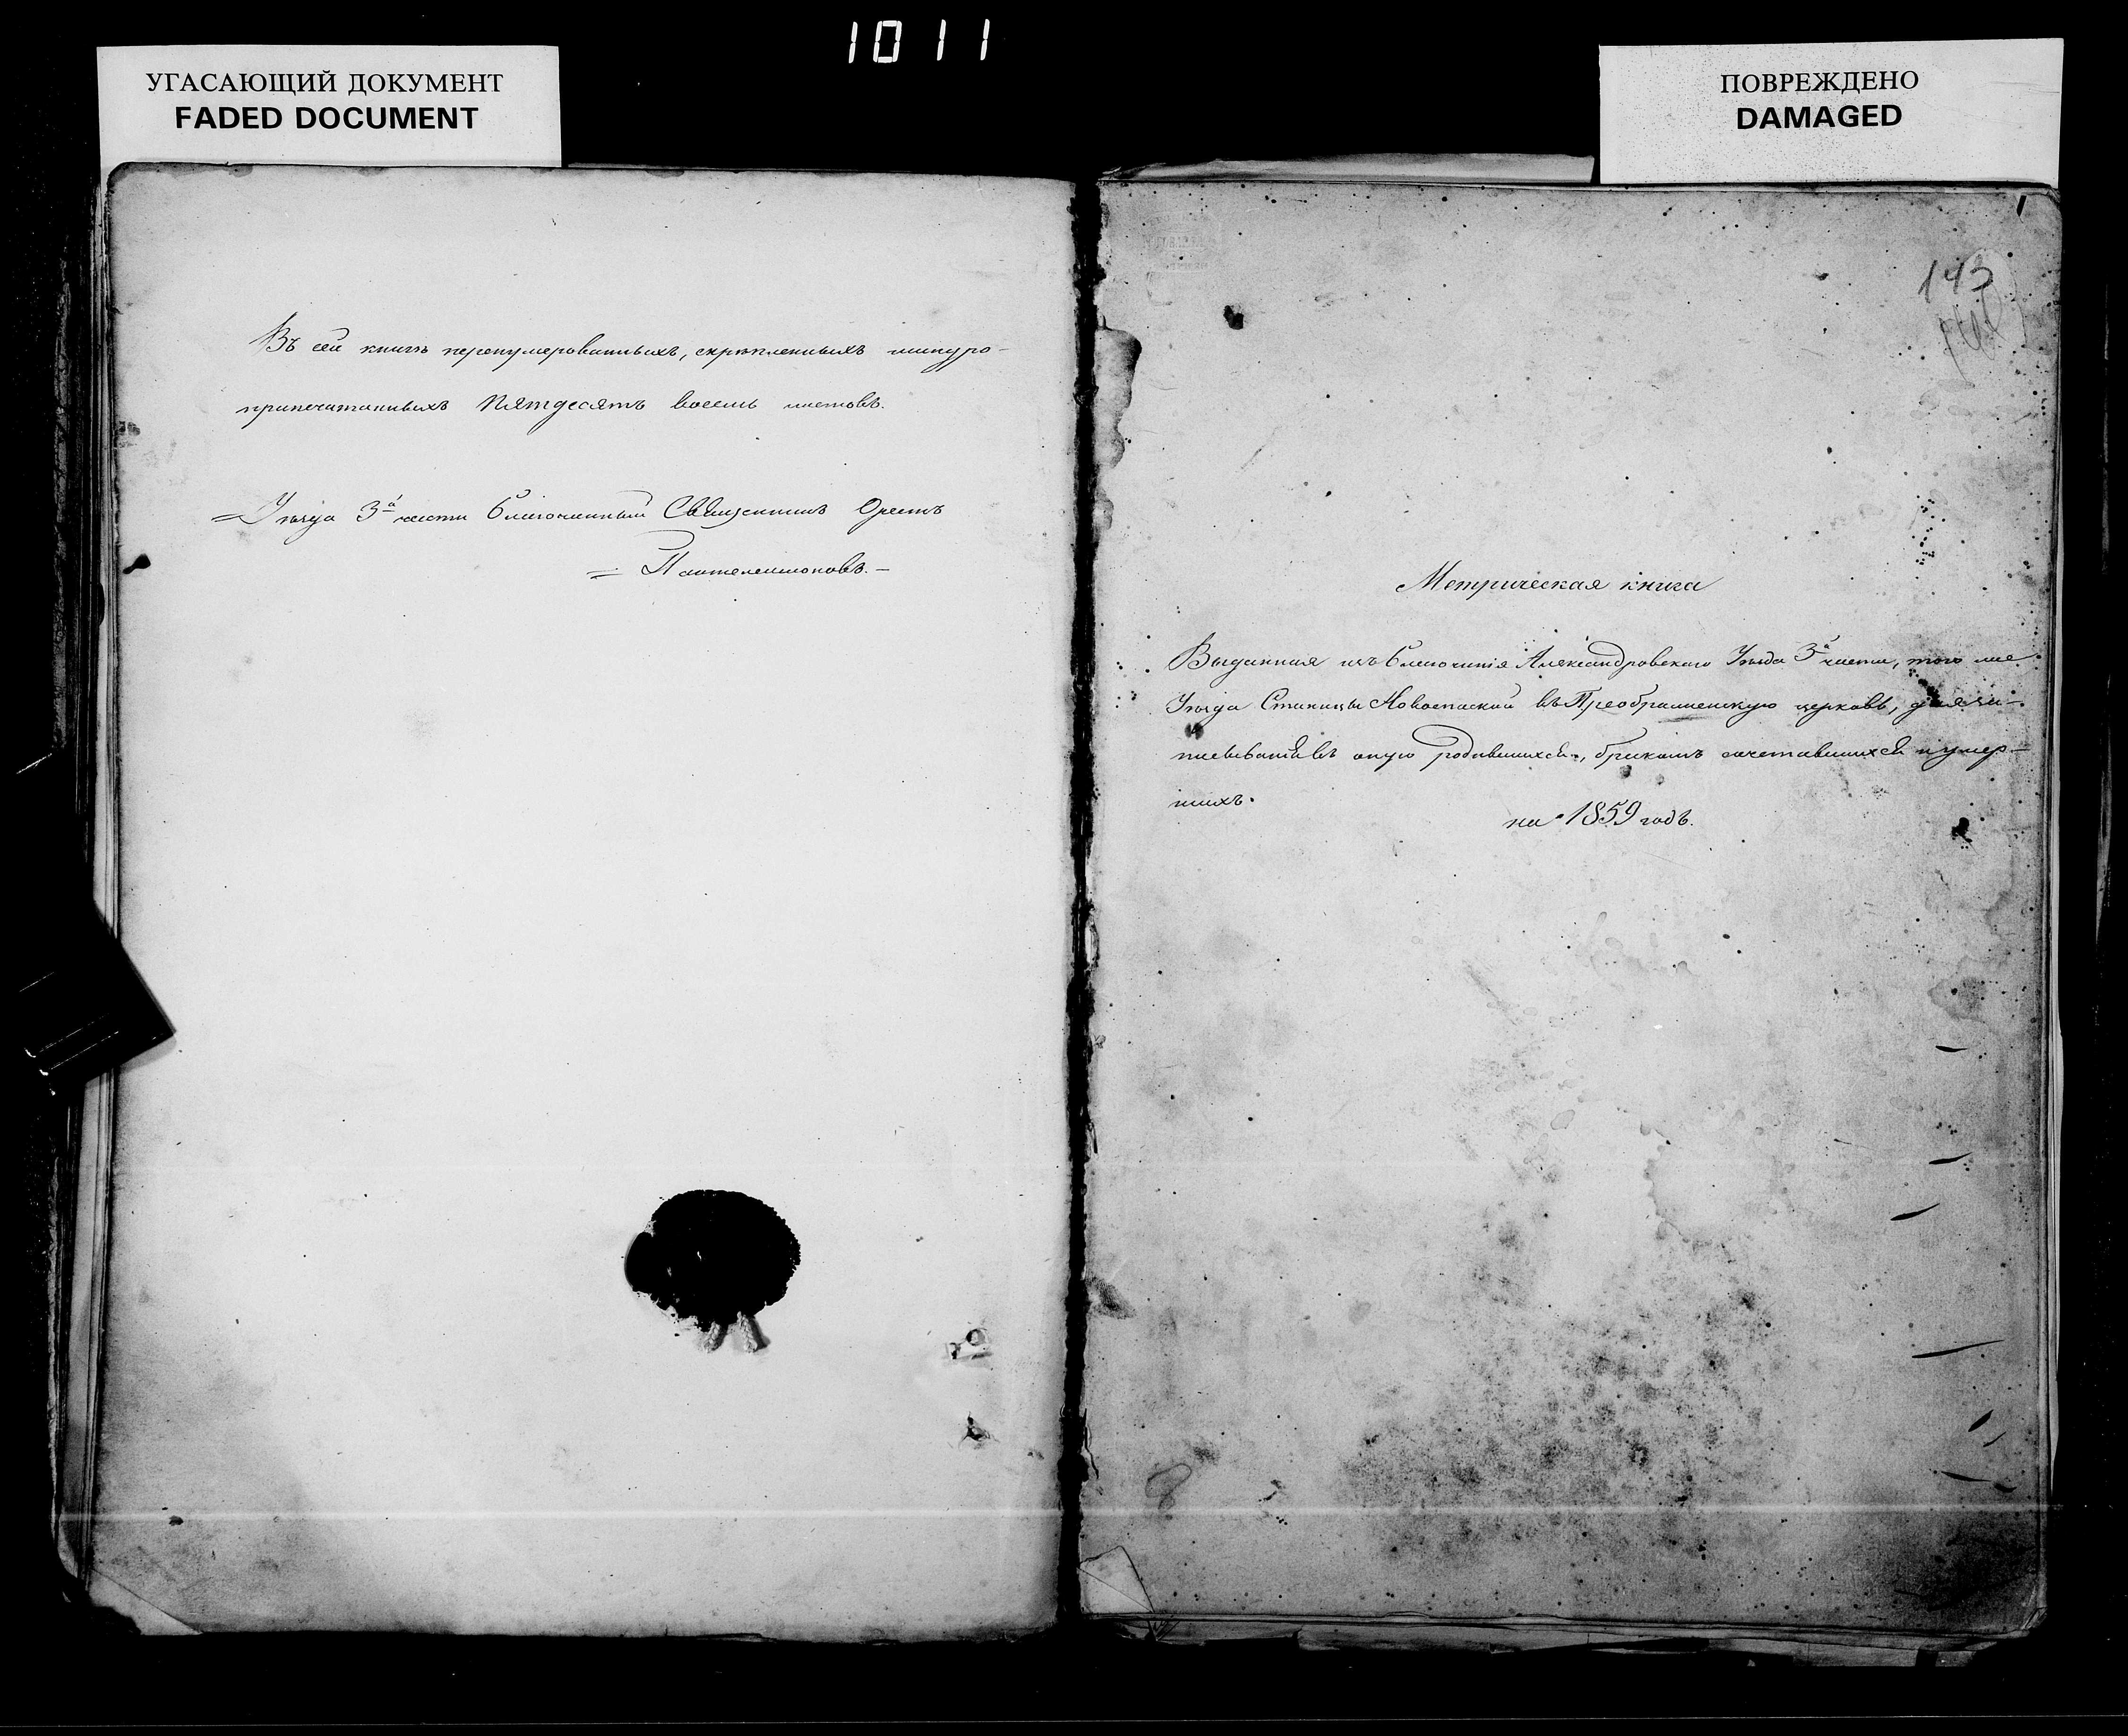 1011
УГАСАЮЩИЙ ДОКУМЕНТ
FADED DOCUMENT
ПОВРЕЖДЕНО
DAMAGED
Въ сей книгѣ перенумерованныхъ, скрѣпленныхъ шнуро-
припечатанныхъ Пятдесятъ восемь листовъ.
Уѣзда 3й части Благочинный Священникъ Орестъ
Пантелеимоновъ.
143
Метрическая книга
Выданная изъ Благочинія Александровскаго Уѣзда 3й части, того же
Уѣзда Станицы Новоспаской въ Преображенскую церковь, для за-
писыванія въ оную родившихся, бракомъ сочетавшихся и умер-
шихъ.
на 1859 годъ.